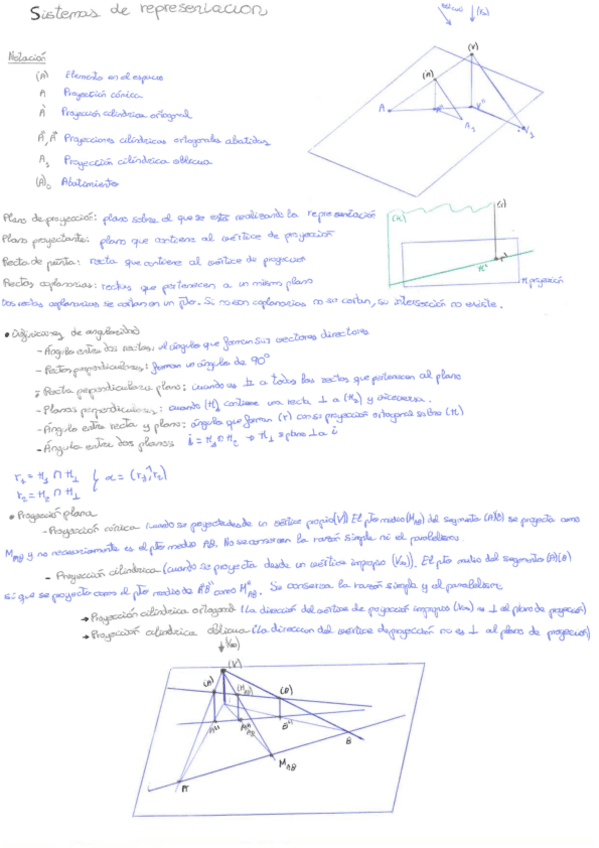 Sistemas de representación
Notación
(A) Elemento en el espacio
A Proyección cónica
A' Proyección cilíndrica ortogonal
A', A'' Proyecciones cilíndricas ortogonales abatidas
A₁ Proyección cilíndrica oblicua
(A)₀ Abatimiento
Plano de proyección: plano sobre el que se está realizando la representación
Plano proyectante: plano que contiene al vértice de proyección
Recta de punta: recta que contiene al vértice de proyección
Rectas coplanarias: rectas que pertenecen a un mismo plano
Dos rectas coplanarias se cortan en un pto. Si no son coplanarias no se cortan, su intersección no existe.
• Definiciones de angularidad
- Ángulo entre dos rectas: el ángulo que forman sus vectores directores
- Rectas perpendiculares: forman un ángulo de 90°
- Recta perpendicular a plano: cuando es ⊥ a todas las rectas que pertenecen al plano
- Planos perpendiculares: cuando (H₁) contiene una recta ⊥ a (H₂) y viceversa.
- Ángulo entre recta y plano: ángulo que forman (r) con su proyección ortogonal sobre (π)
- Ángulo entre dos planos i = H₁ ∩ H₂ → H⊥ ≡ plano ⊥ a i
r₁ = H₁ ∩ H⊥
r₂ = H₂ ∩ H⊥ } α = (r₁, r₂)
• Proyección plana
- Proyección cónica (cuando se proyecta desde un vértice propio (V)) El pto medio (M_AB) del segmento (A)(B) se proyecta como
M_AB y no necesariamente es el pto medio AB. No se conservan la razón simple ni el paralelismo.
- Proyección cilíndrica (cuando se proyecta desde un vértice impropio (V∞)). El pto medio del segmento (A)(B)
sí que se proyecta como el pto medio de A''B'' como M''_AB. Se conserva la razón simple y el paralelismo
→ Proyección cilíndrica ortogonal (la dirección del vértice de proyección impropio (V∞) es ⊥ al plano de proyección)
→ Proyección cilíndrica oblicua (la dirección del vértice de proyección no es ⊥ al plano de proyección)
(V∞)
(V)
(A) (M_AB) (B)
A'' M''_AB B''
B
M_AB
A